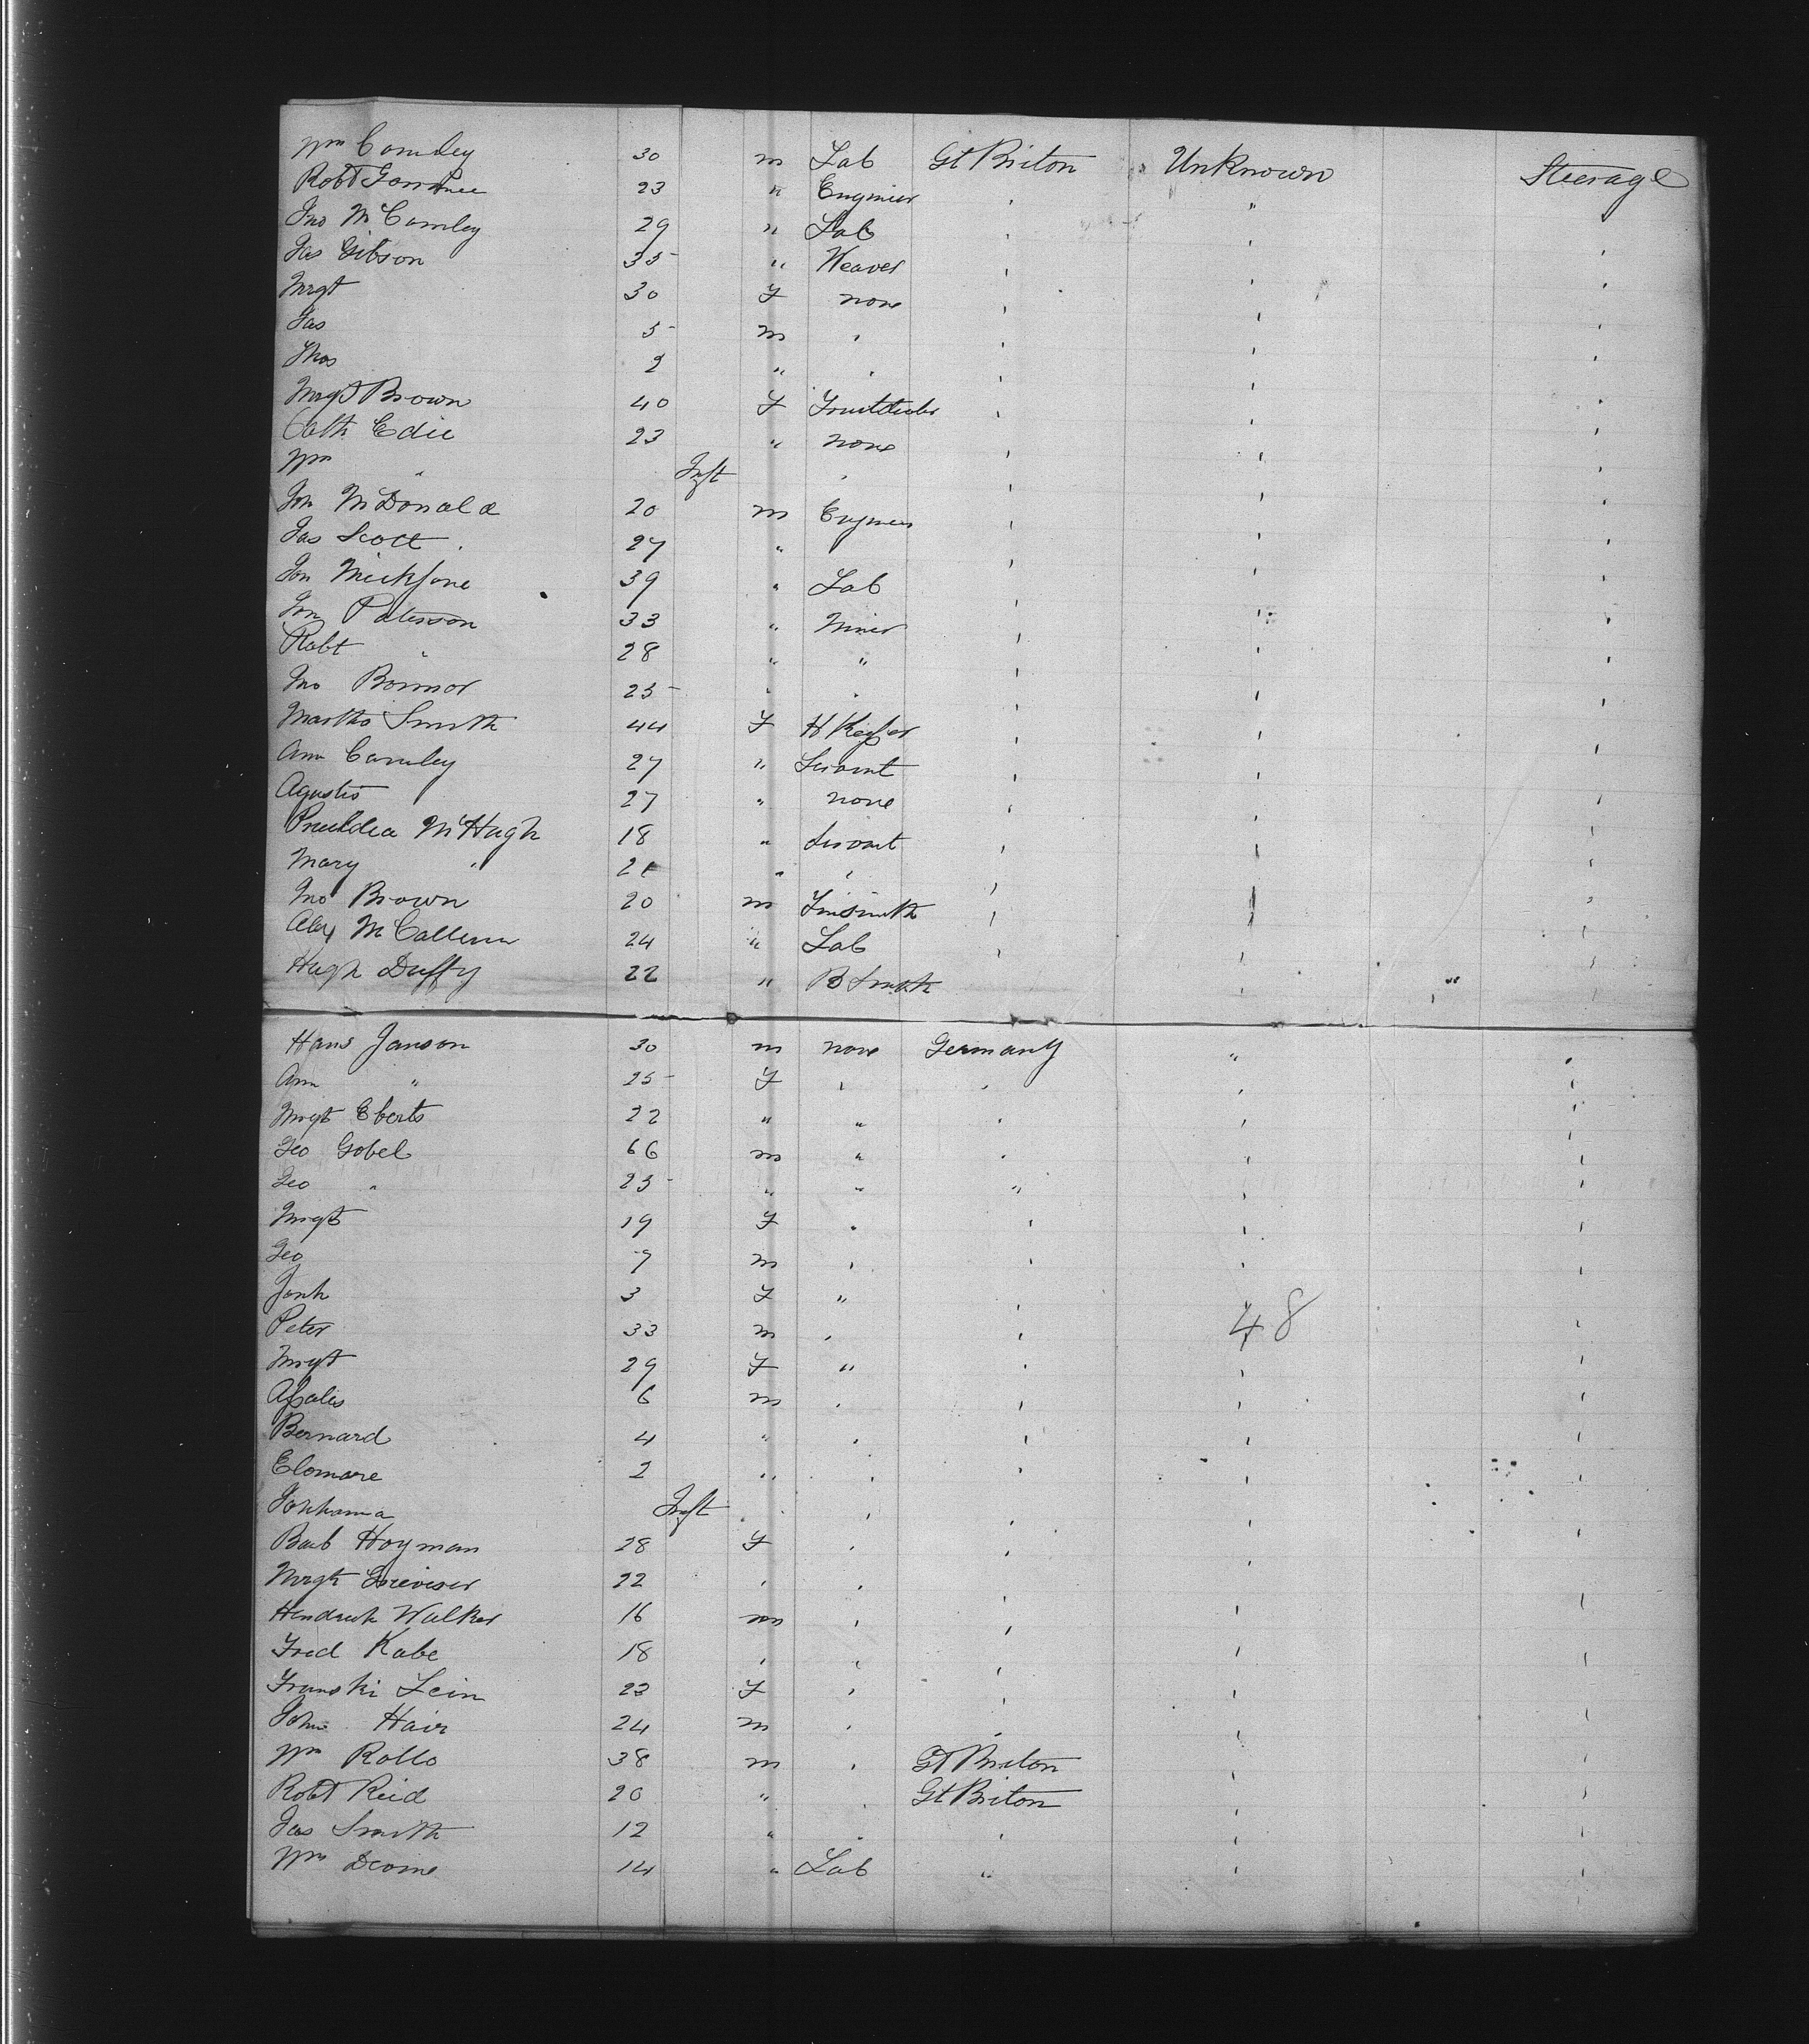 Wm Comley 30 m Lab Gt Briton Unknown Steerage
Robt 23 " Engineer , " ,
Jno McComley 29 " Lab , , ,
Jas Gibson 35 " Weaver , , ,
Mrgt 30 F none , , ,
Jas 5 m , , , ,
Thos 2 " , , , ,
Mrgt Brown 40 F , , ,
Cath Edie 23 " none , , ,
Wm " Inft , , , ,
Jon McDonald 20 m Engineer , , ,
Jas Scott 27 " , , ,
Jon 39 " Lab , , ,
Jon Paterson 33 " Miner , , ,
Robt " 28 " " , , ,
Jno Bonnor 25 , , , , ,
Martha Smith 44 F H Keeper , , ,
Ann Comley 27 " Servant , , ,
27 " none , , ,
McHugh 18 " Servant , , ,
Mary " 21 " , , , ,
Jno Brown 20 m Tinsmith , , ,
Alex McCallum 24 " Lab , , ,
Hugh Duffy 22 " B Smith , ,
Hans Janson 30 m none Germany " ,
Ann " 25 F , , , ,
Mrgt Eberts 22 " " , , ,
Geo Gobel 66 m " , , ,
Geo " 25 " " " , ,
Mrgt 19 F , , , ,
Geo 7 m , , , ,
3 F " , ,
Peter 33 m , , 48 ,
Mrgt 29 F " , , ,
6 m , , , ,
Bernard 4 " , , , ,
Elomare 2 " , , , ,
Inft , , , ,
Barb Hoyman 28 F , , ,
Mrgt 22 , , , ,
Walker 16 m , , ,
Fred Kabe 18 , , , , ,
Lein 23 F , , , ,
John Hair 24 m , , ,
Wm Rollo 38 m , Gt Briton , ,
Robt Reid 20 " , Gt Briton , ,
Jas Smith 12 " , , , ,
Wm 14 " Lab " , ,